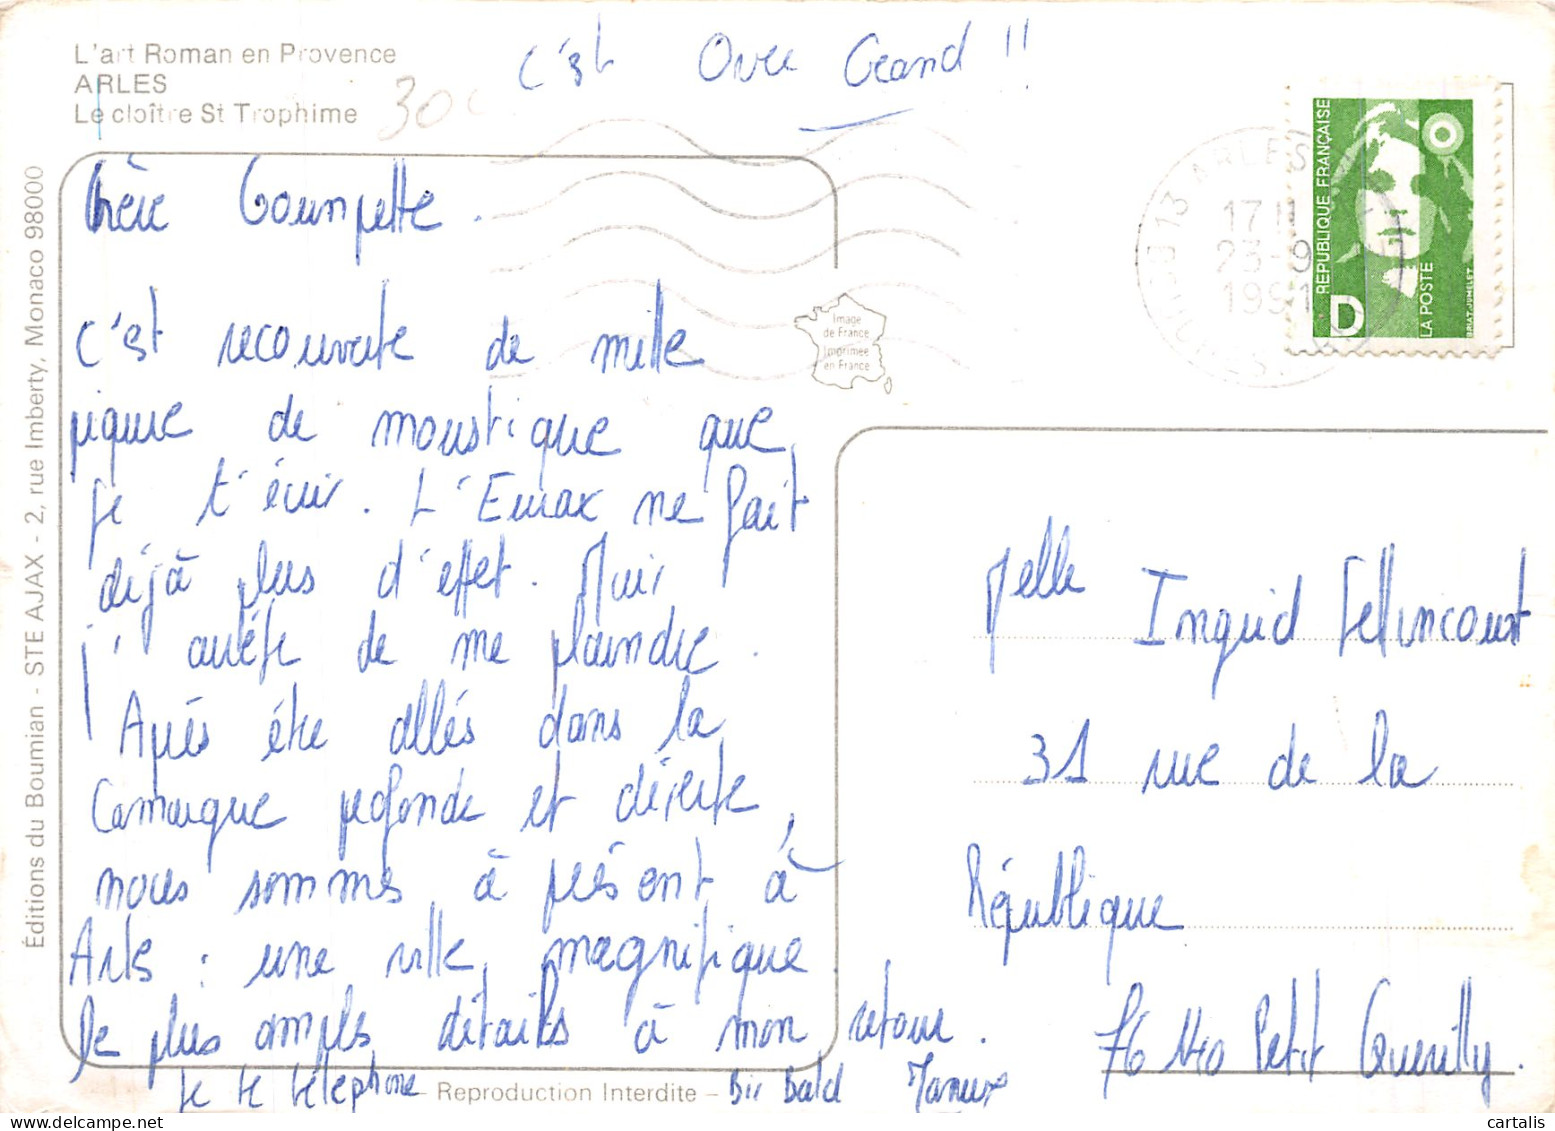 L'art Roman en Provence
ARLES
Le cloître St Trophime
30
C'est Over Grand !!
Chère Gounpette.
C'est recouverte de mille
piqure de moustique que
je t'écris. L'Eurax ne fait
déjà plus d'effet. Mais
j'arrête de me plaindre.
Après être allés dans la
Camargue profonde et déserte,
nous sommes à présent à
Arles : une ville magnifique.
De plus amples détails à mon retour.
Je te téléphone
Bis Bald
Éditions du Boumian - STE AJAX - 2, rue Imberty, Monaco 98000
Reproduction Interdite
Image
de France
Imprimée
en France
13 ARLES
17 H
23-9
1991
RÉPUBLIQUE FRANÇAISE
LA POSTE
D
BRIAT-JUMELET
Melle Ingrid
31 rue de la
République
76 140 Petit Quevilly.
cartalis